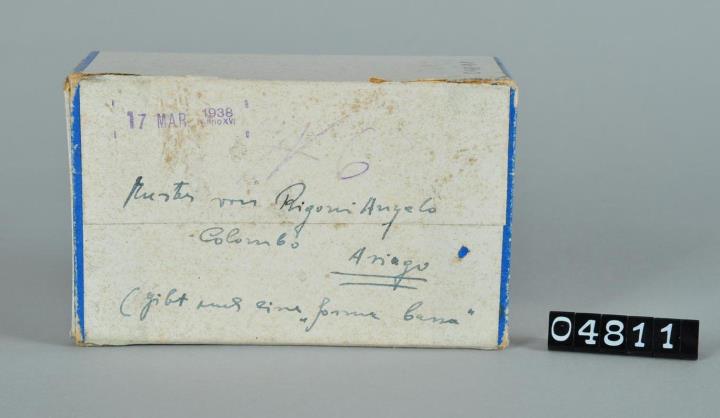 17 MAR 1938
Anno XVI
Muster von Rigoni Angelo
Colombo
Asiago
(gibt auch eine „forma bassa“
04811